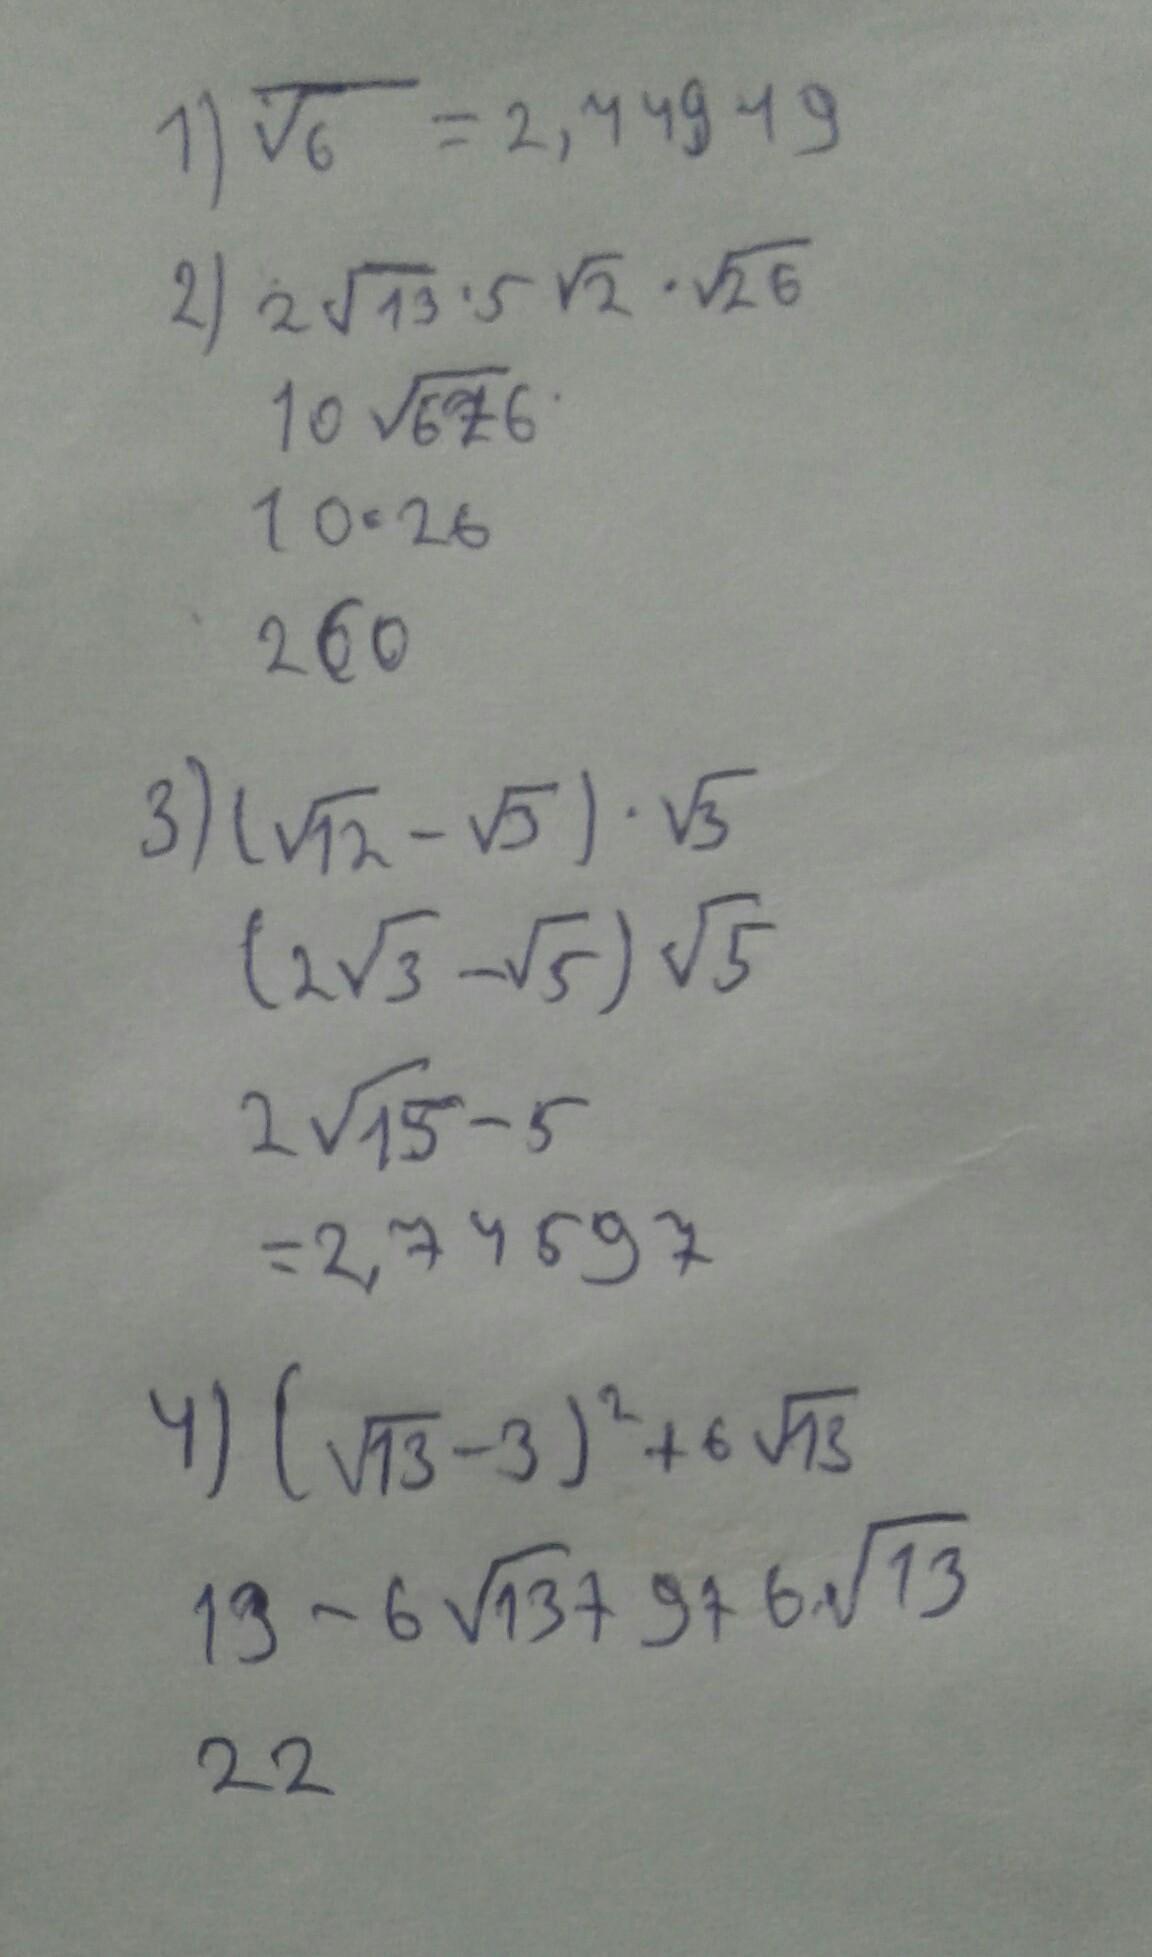 1) √6 = 2,44949
2) 2√13 · 5√2 · √26
10√676
10·26
260
3) (√12 - √5) · √3
(2√3 - √5) √5
2√15 - 5
=2,74597
4) (√13 - 3)² + 6√13
13 - 6√13 + 9 + 6√13
22